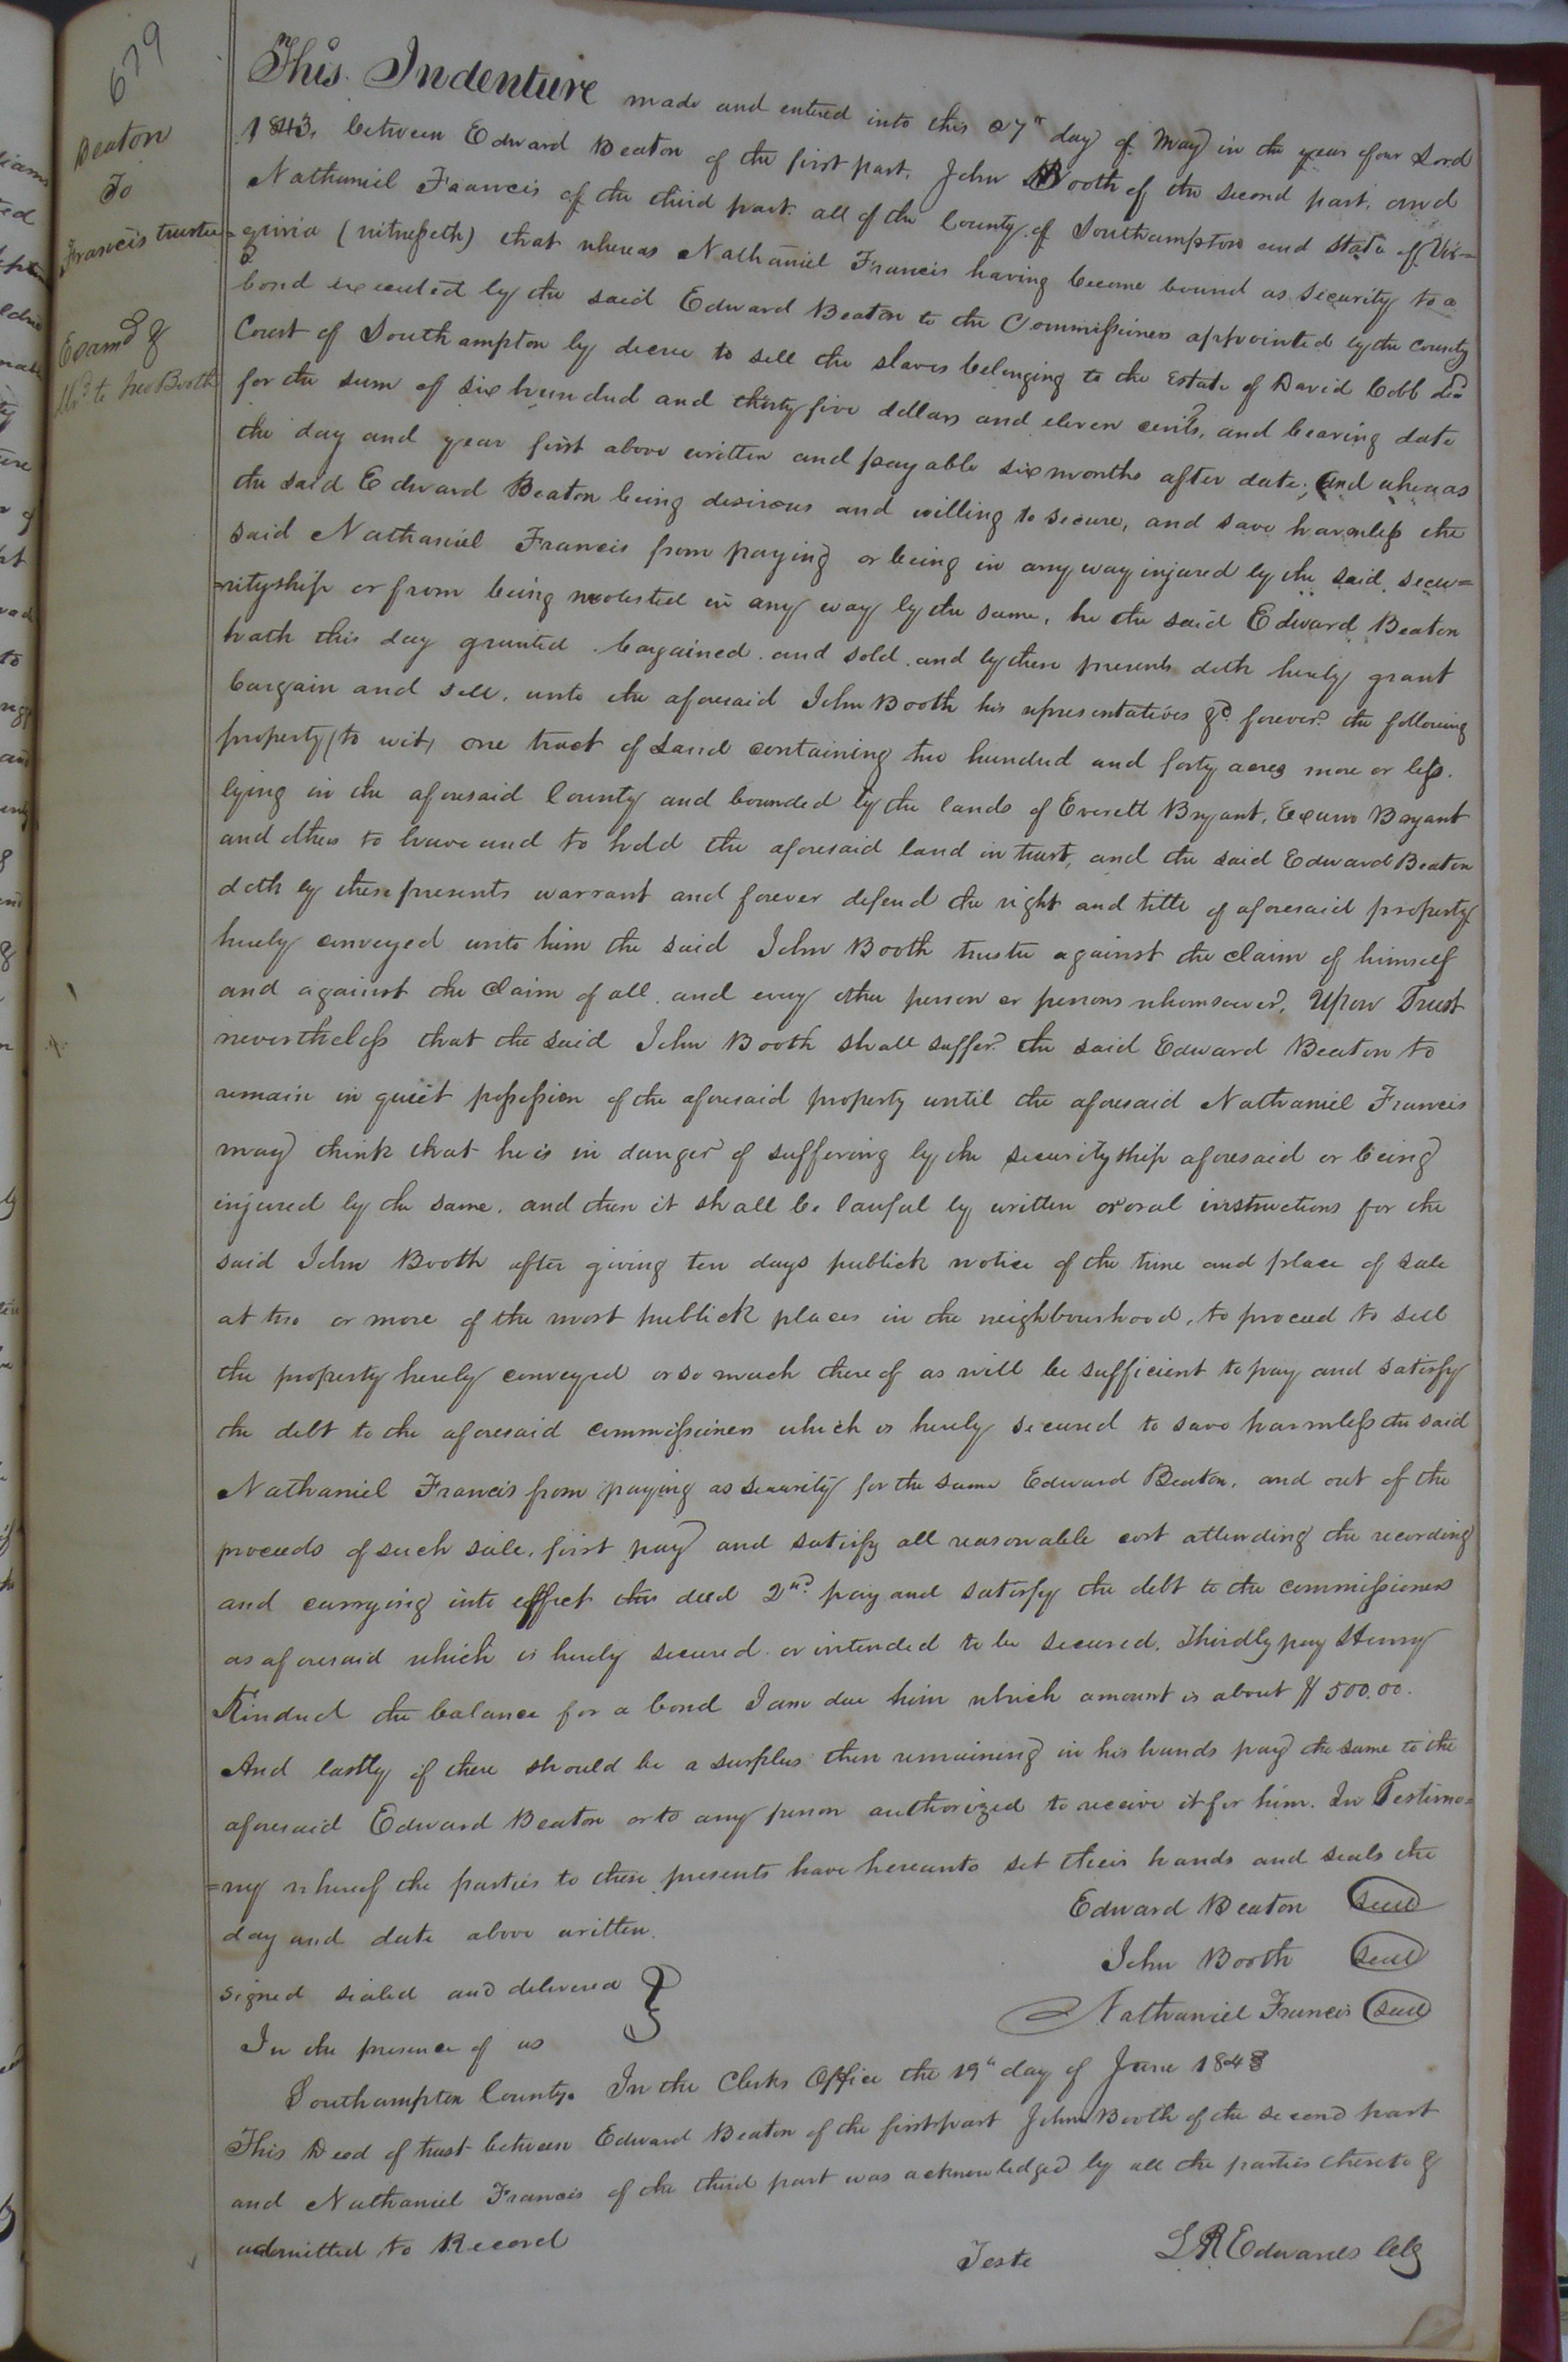 679
Beaton
To
Francis trustee
Examd &
to Jno Booth
This Indenture made and entered into this 27th day of May in the year of our Lord
1843, between Edward Beaton of the first part, John Booth of the second part, and
Nathaniel Francis of the third part all of the County of Southampton and State of Vir=
=ginia (witnesseth) that whereas Nathaniel Francis having become bound as security to a
bond executed by the said Edward Beaton to the Commissioners appointed by the County
Court of Southampton by decree to sell the slaves belonging to the Estate of David Cobb decd
for the sum of six hundred and thirty five dollars and eleven cents, and bearing date
the day and year first above written and payable six months after date; And whereas
the said Edward Beaton being desirous and willing to secure, and save harmless the
said Nathaniel Francis from paying or being in any way injured by the said secu=
=rityship or from being molested in any way by the same, he the said Edward Beaton
hath this day granted bargained and sold and by these presents doth hereby grant
bargain and sell, unto the aforesaid John Booth his representatives &c forever the following
property (to wit, one tract of Land containing two hundred and forty acres more or less.
lying in the aforesaid County and bounded by the lands of Everett Bryant, Exum Bryant
and others to have and to hold the aforesaid land in trust, and the said Edward Beaton
doth by these presents warrant and forever defend the right and title of aforesaid property
hereby conveyed unto him the said John Booth trustee against the claim of himself
and against the claim of all and every other person or persons whomsoever, Upon Trust
nevertheless that the said John Booth shall suffer the said Edward Beaton to
remain in quiet possession of the aforesaid property until the aforesaid Nathaniel Francis
may think that he is in danger of suffering by the securityship aforesaid or being
injured by the same, and then it shall be lawful by written or oral instructions for the
said John Booth after giving ten days publick notice of the time and place of sale
at two or more of the most publick places in the neighbourhood, to proceed to sell
the property hereby conveyed or so much thereof as will be sufficient to pay and satisfy
the debt to the aforesaid commissioners which is hereby secured to save harmless the said
Nathaniel Francis from paying as security for the same Edward Beaton, and out of the
proceeds of such sale, first pay and satisfy all reasonable cost attending the recording
and carrying into effect this deed 2nd pay and satisfy the debt to the commissioners
as aforesaid which is hereby secured or intended to be secured, Thirdly pay Henry
Kindred the balance for a bond I am due him which amount is about $500.00.
And lastly if there should be a surplus then remaining in his hands pay the same to the
aforesaid Edward Beaton or to any person authorized to receive it for him. In Testimo=
=ny whereof the parties to these presents have hereunto set their hands and seals the
day and date above written.
Edward Beaton seal
John Booth seal
Nathaniel Francis seal
signed sealed and delivered
In the presence of us
Southampton County. In the Clerks Office the 19th day of June 1843
This Deed of trust between Edward Beaton of the first part John Booth of the second part
and Nathaniel Francis of the third part was acknowledged by all the parties thereto &
admitted to Record
Teste L R Edwards Clk